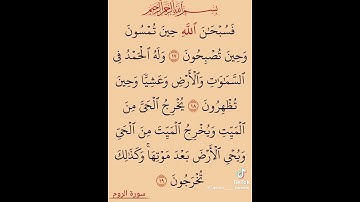 بسم الله الرحمن الرحيم
فَسُبْحَـٰنَ ٱللَّهِ حِينَ تُمْسُونَ
وَحِينَ تُصْبِحُونَ ١٧ وَلَهُ ٱلْحَمْدُ فِى
ٱلسَّمَـٰوَٰتِ وَٱلْأَرْضِ وَعَشِيًّا وَحِينَ
تُظْهِرُونَ ١٨ يُخْرِجُ ٱلْحَىَّ مِنَ
ٱلْمَيِّتِ وَيُخْرِجُ ٱلْمَيِّتَ مِنَ ٱلْحَىِّ
وَيُحْىِ ٱلْأَرْضَ بَعْدَ مَوْتِهَا ۚ وَكَذَٰلِكَ
تُخْرَجُونَ ١٩
سورة الروم